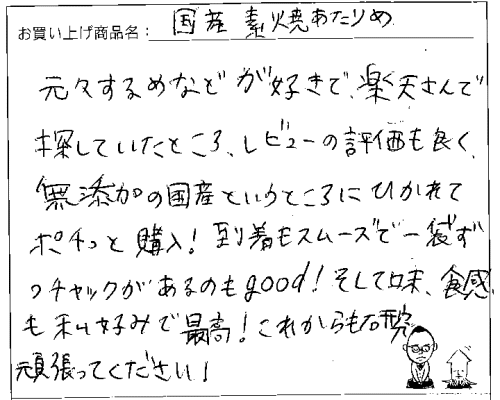 お買い上げ商品名： 国産 素焼あたりめ
元々するめなどが好きで、楽天さんで
探していたところ、レビューの評価も良く、
無添加の国産というところにひかれて
ポチっと購入！到着もスムーズで一袋ず
つチャックがあるのもgood！そして味、食感
も私好みで最高！これからも研究
頑張ってください！